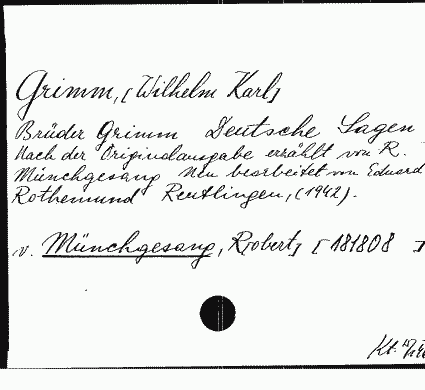 Grimm, [Wilhelm Karl]
Brüder Grimm Deutsche Sagen
Nach der Originalausgabe erzählt von R.
Münchgesang Neu bearbeitet von Eduard
Rothemund Reutlingen, (1942).
v. Münchgesang, R[obert] [181808 ]
Kt.